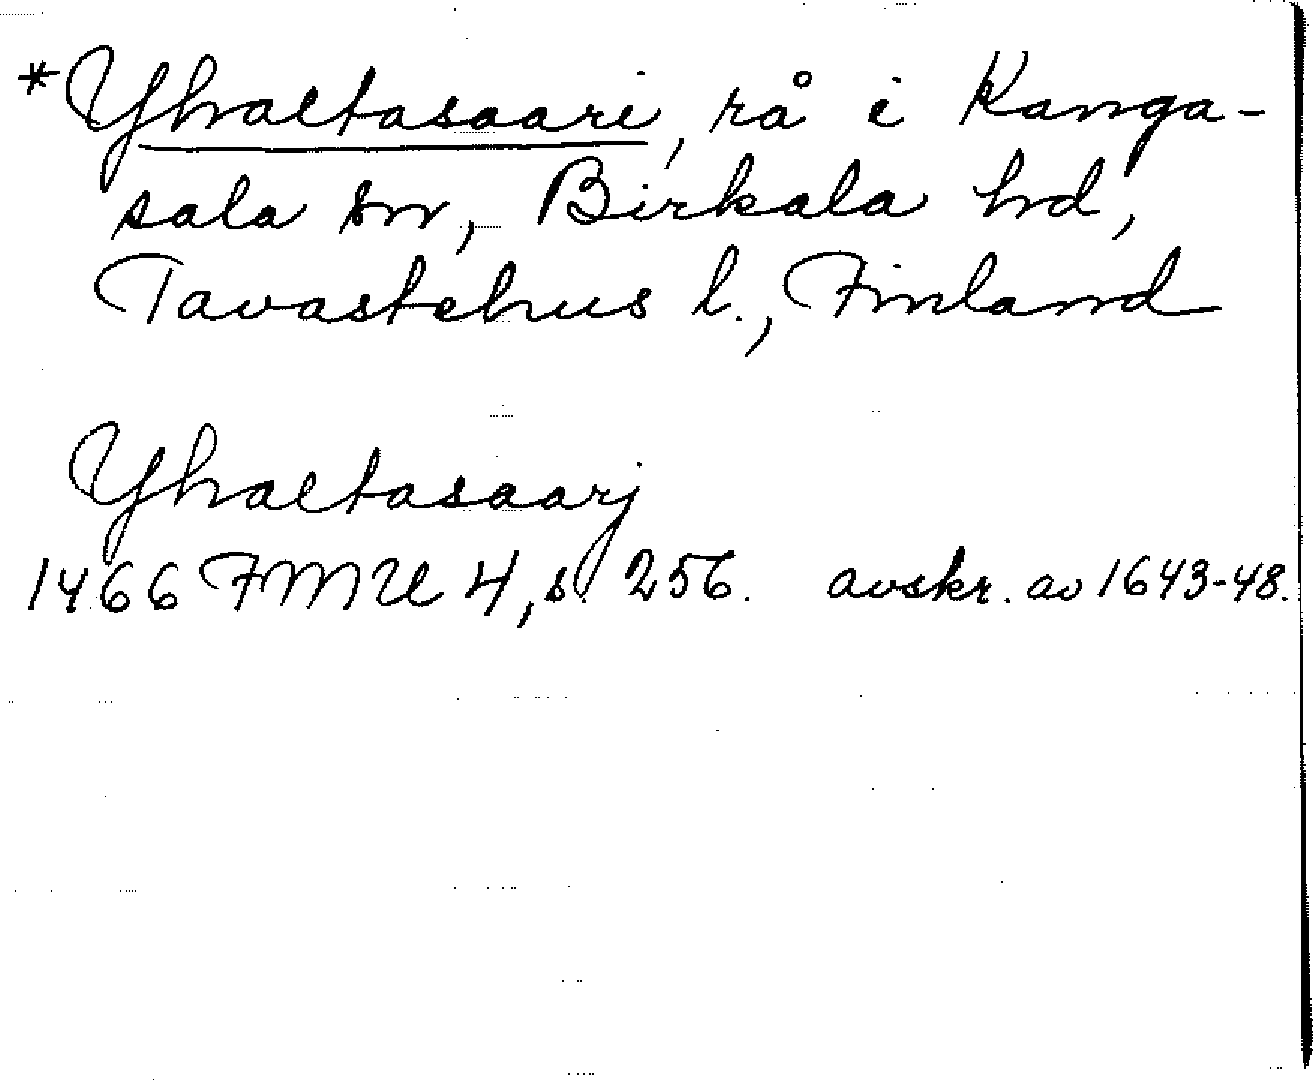 *Yhaltasaari, rå i Kanga-
sala sn, Birkala hd,
Tavastehus l., Finland
Yhaltasaarj
1466 FMU 4, s. 256. avskr. av 1643-48.